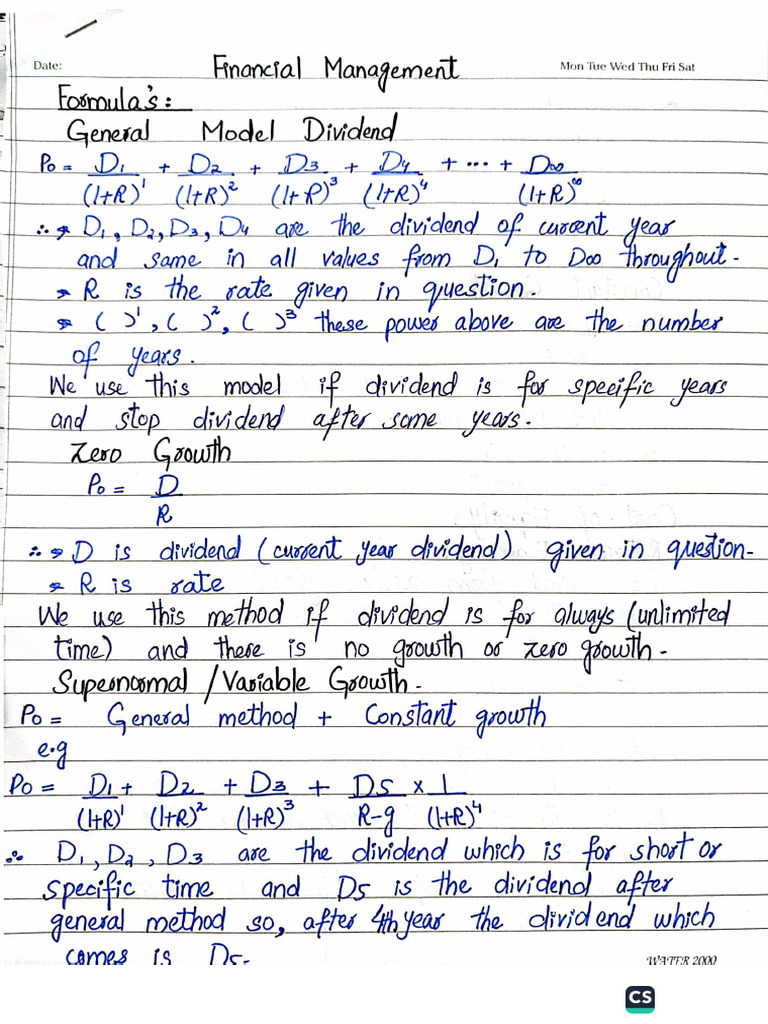 Date:
Financial Management
Mon Tue Wed Thu Fri Sat
Formula's:
General Model Dividend
Po = D1/(1+R)^1 + D2/(1+R)^2 + D3/(1+R)^3 + D4/(1+R)^4 + ... + D∞/(1+R)^∞
∴ → D1, D2, D3, D4 are the dividend of current year
and same in all values from D1 to D∞ throughout.
→ R is the rate given in question.
→ ( )^1, ( )^2, ( )^3 these power above are the number
of years.
We use this model if dividend is for specific years
and stop dividend after some years.
Zero Growth
Po = D/R
∴ → D is dividend (current year dividend) given in question.
→ R is rate
We use this method if dividend is for always (unlimited
time) and there is no growth or zero growth.
Supernormal / Variable Growth.
Po = General method + Constant growth
e.g
Po = D1/(1+R)^1 + D2/(1+R)^2 + D3/(1+R)^3 + D5/R-g × 1/(1+R)^4
∴ D1, D2, D3 are the dividend which is for short or
specific time and D5 is the dividend after
general method so, after 4th year the dividend which
comes is D5.
WATER 2000
CS